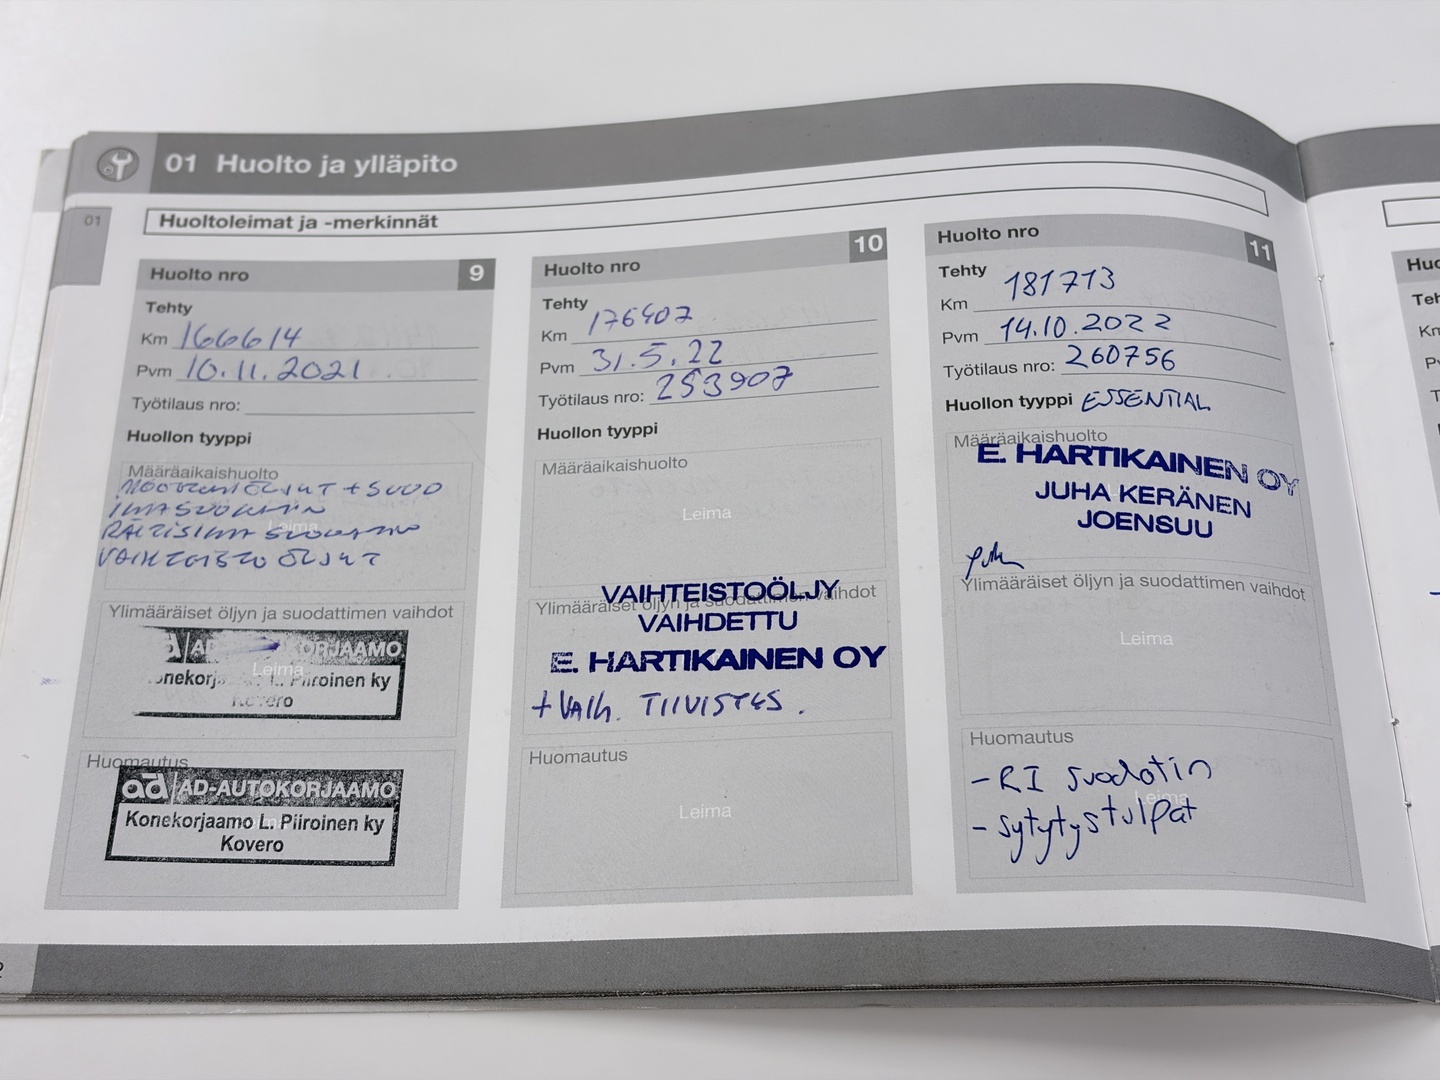 01 Huolto ja ylläpito
01
Huoltoleimat ja -merkinnät
Huolto nro 9
Tehty
Km 166614
Pvm 10.11.2021
Työtilaus nro:
Huollon tyyppi
Määräaikaishuolto
MOOTTORIÖLJYT + SUOD
ILMASUODATIN
RAITISILMA SUODATIN
VAIHTEISTO ÖLJYT
Leima
Ylimääräiset öljyn ja suodattimen vaihdot
ad AD-AUTOKORJAAMO
Konekorjaamo L. Piiroinen ky
Kovero
Leima
Huomautus
ad AD-AUTOKORJAAMO
Konekorjaamo L. Piiroinen ky
Kovero
Huolto nro 10
Tehty
Km 176407
Pvm 31.5.22
Työtilaus nro: 253907
Huollon tyyppi
Määräaikaishuolto
Leima
Ylimääräiset öljyn ja suodattimen vaihdot
VAIHTEISTOÖLJY
VAIHDETTU
E. HARTIKAINEN OY
+ VAIH. TIIVISTYS.
Huomautus
Leima
Huolto nro 11
Tehty
Km 181713
Pvm 14.10.2022
Työtilaus nro: 260756
Huollon tyyppi ESSENTIAL
Määräaikaishuolto
E. HARTIKAINEN OY
JUHA KERÄNEN
JOENSUU
Ylimääräiset öljyn ja suodattimen vaihdot
Leima
Huomautus
- RI suodatin
Leima
- sytytystulpat